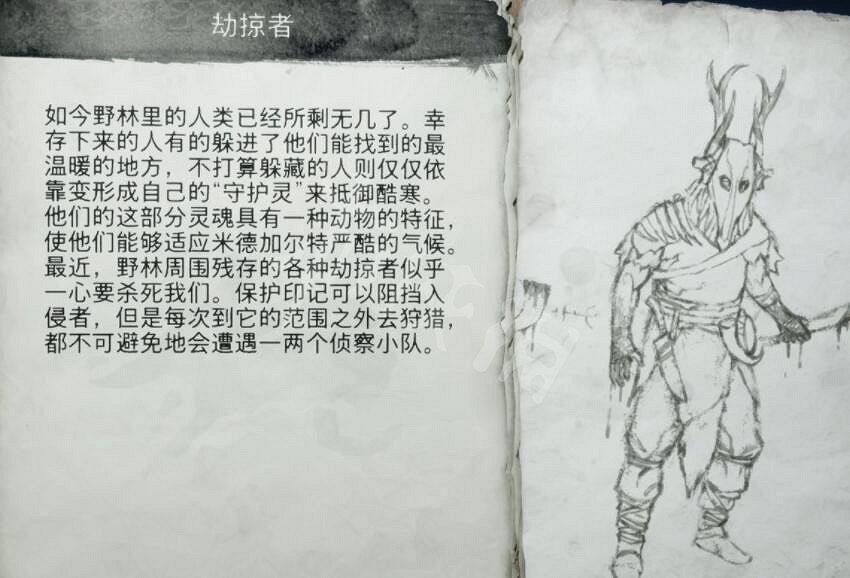 劫掠者
如今野林里的人类已经所剩无几了。幸
存下来的人有的躲进了他们能找到的最
温暖的地方，不打算躲藏的人则仅仅依
靠变形成自己的“守护灵”来抵御酷寒。
他们的这部分灵魂具有一种动物的特征，
使他们能够适应米德加尔特严酷的气候。
最近，野林周围残存的各种劫掠者似乎
一心要杀死我们。保护印记可以阻挡入
侵者，但是每次到它的范围之外去狩猎，
都不可避免地会遭遇一两个侦察小队。